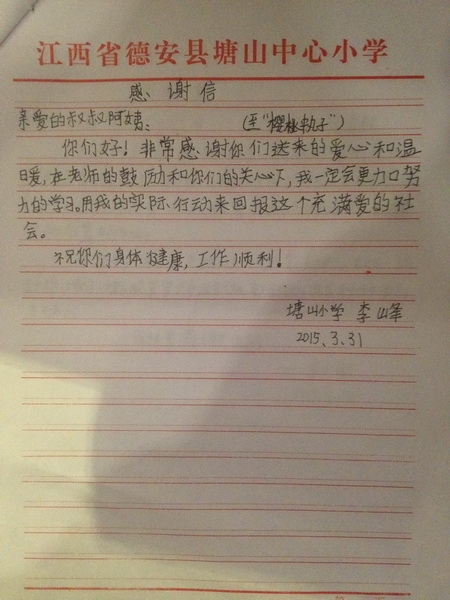 江西省德安县塘山中心小学
感谢信
亲爱的叔叔阿姨: (至“樱桃执子”)
你们好!非常感谢你们送来的爱心和温
暖,在老师的鼓励和你们的关心下,我一定会更加努
力的学习。用我的实际行动来回报这个充满爱的社
会。
祝你们身体健康,工作顺利!
塘山小学 李峰
2015.3.31